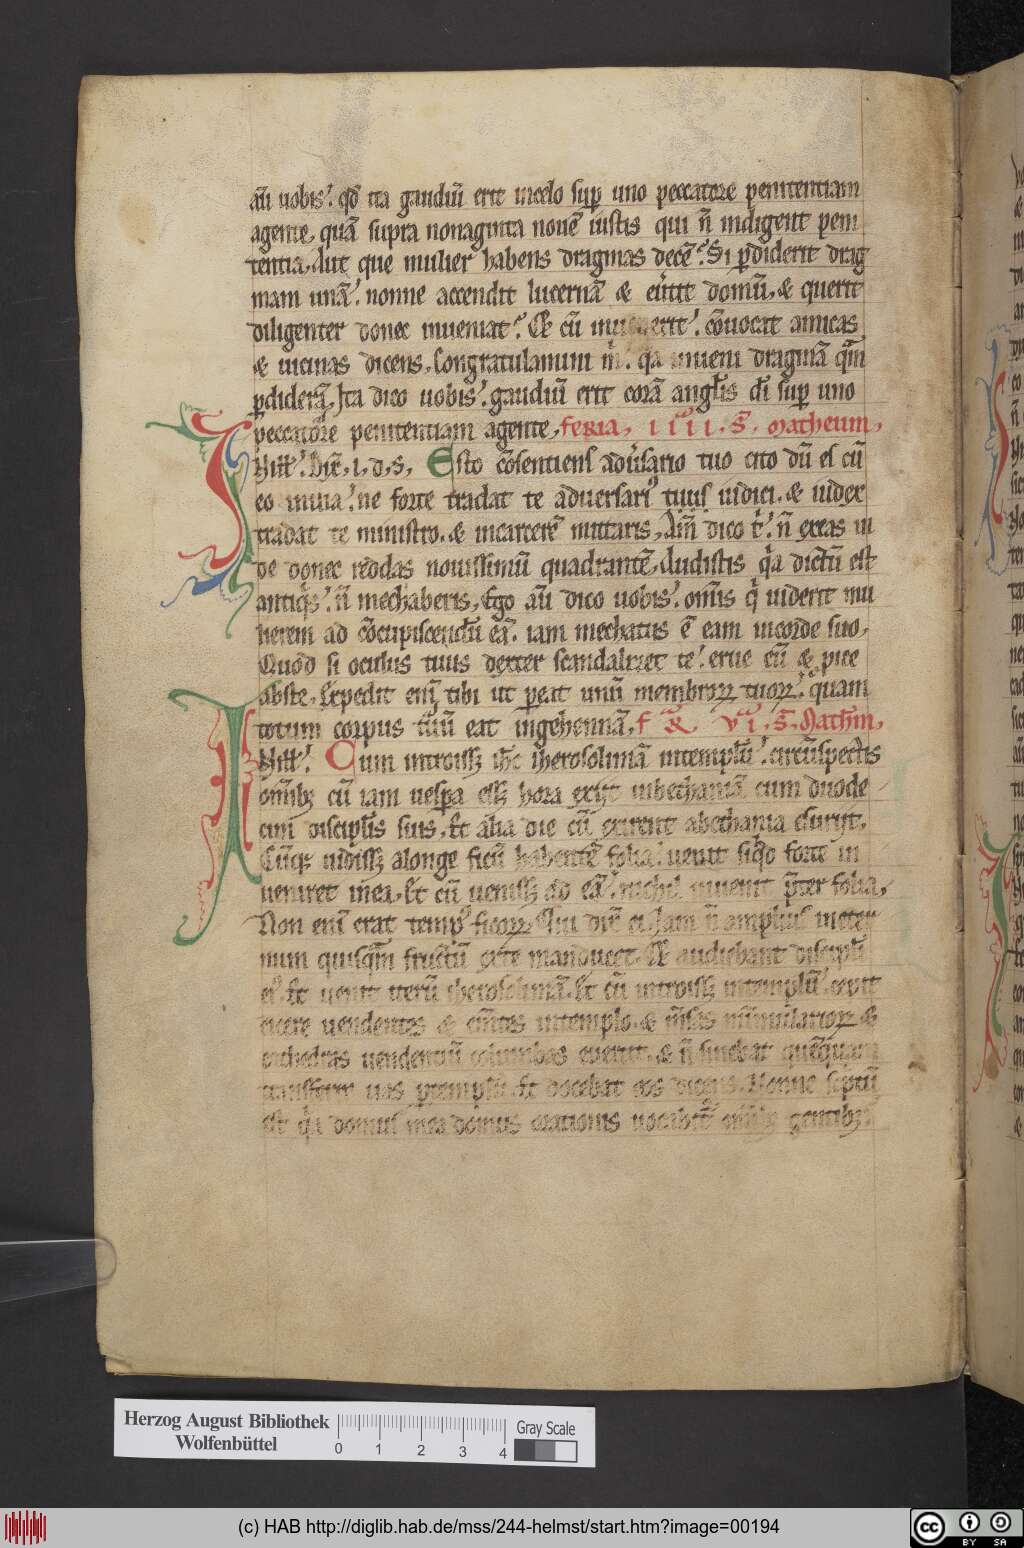 aū uobis. qď ita gaudiū erit incelo suꝑ uno peccatore penitentiam
agente, quā supra nonaginta nouē iustis qui ñ indigent peni
tentia, Aut que mulier habens dragmas decē. Si ꝑdiderit drag
mam unā. nonne accendit lucernā & eu̾tit domū, & querit
diligenter donec inueniat. Et cū inuenerit. cōuocat amicas
& uicinas dicens, Congratulamini m̄. qᷓa inueni dragmā qᷓm
ꝑdiderā, Ita dico uobis. gaudiū erit corā angl̄is dī suꝑ uno
peccatore penitentiam agente, feria, IIII. S̄. Matheum,
In ill̄. dix̄, i, d, s, Esto cōsentiens adu̾sario tuo cito dū es cū
eo in uia. ne forte tradat te aduersariꝰ tuus iudici. & iudex
tradat te ministro. & incarcerē mittaris, Am̄ dico t̾. ñ exeas in
de donec reddas nouissimū quadrantē, Audistis qᷓa dictū est
antiqͥs. ñ mechaberis, Ego aū dico uobis. om̄is qͥ uiderit mu
lierem ad cōcupiscendū eā. iam mechatus ē eam incorde suo,
Quod si oculus tuus dexter scandalizet te. erue eū & pice
abste, Expedit enī tibi ut ꝑeat unū membroꝝ tuoꝝ. quam
totum corpus tuū eat ingehennā, f & VI. S̄. Mathm̄,
In ill̄. Cum introissꝫ ihc̄ iherosolimā intemplū. circūspectis
om̄ibꝫ cū iam uesꝑa essꝫ hora exijt inbethaniā cum duode
cim discipl̄is suis, Et alia die cū exirent abethania esurijt,
Cūqꝫ uidissꝫ alonge ficū habentē folia. uenit siqͥd forte in
ueniret inea, Et cū uenissꝫ ad eā. nichil inuenit p̄ter folia,
Non enī erat tempꝰ ficoꝝ, Qui dix̄ ei Iam ñ amplius ineter
num quisqᷓm fructū exte manducet, Et audiebant discipl̄i
eiꝰ. Et uenit iterū iherosolimā. Et cū introissꝫ intemplū. cepit
eicere uendentes & em̄tes intemplo. & m̄sas nūmularioꝝ &
cathedras uendentiū columbas euertit. & ñ sinebat quēquam
transferr uas ꝑtemplū. Et docebat eos dicens. Nonne sc̄ptū
est qᷓa domus mea domus orationis uocabit̄ om̄ibꝫ gentibꝫ.
Herzog August Bibliothek
Wolfenbüttel
0 1 2 3 4
Gray Scale
(c) HAB http://diglib.hab.de/mss/244-helmst/start.htm?image=00194
cc BY SA